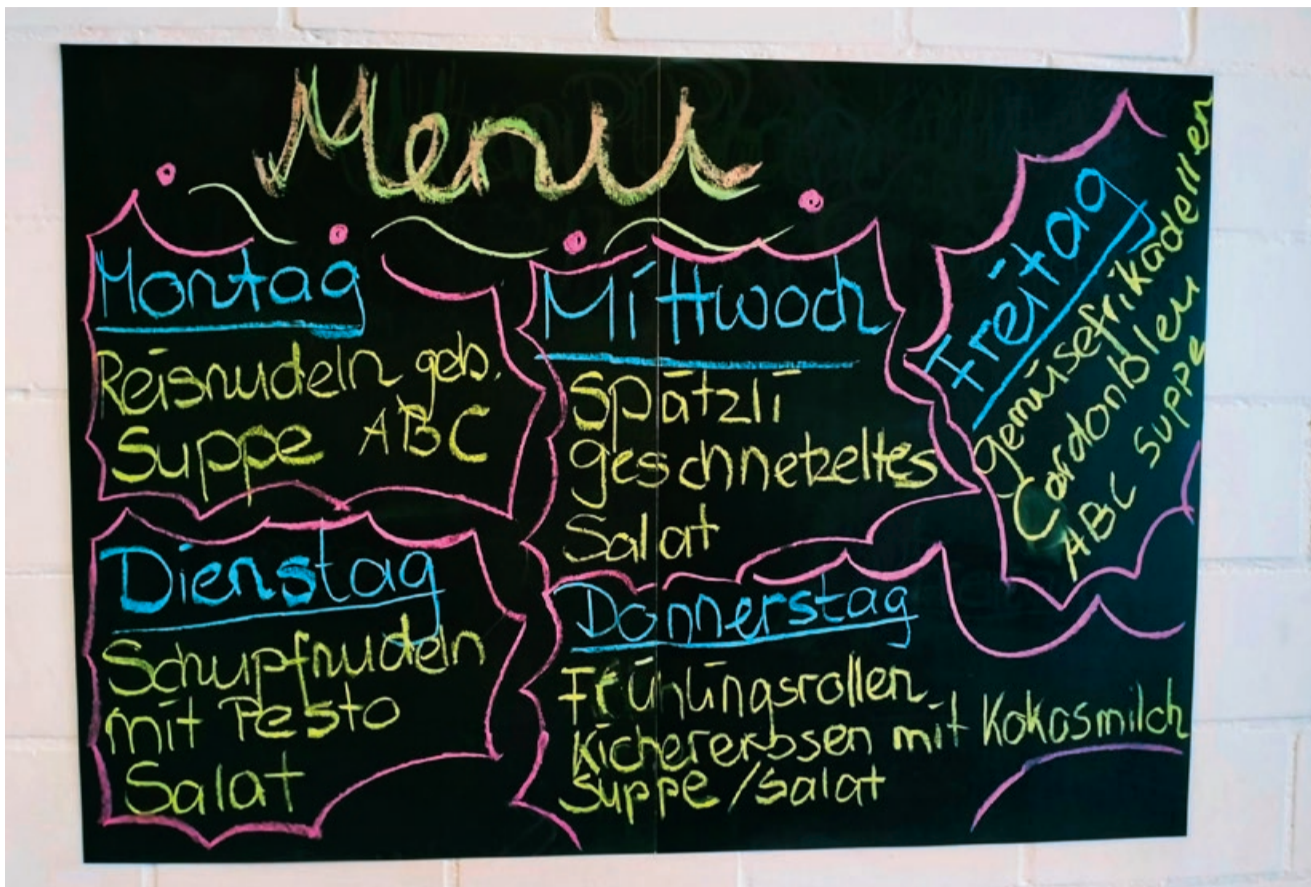 Menü
Montag
Reisnudeln geb.
Suppe ABC
Dienstag
Schupfnudeln
mit Pesto
Salat
Mittwoch
Spätzli
geschnetzeltes
Salat
Donnerstag
Frühlingsrollen
Kichererbsen mit Kokosmilch
Suppe / Salat
Freitag
gemüsefrikadellen
Cordonbleu
ABC Suppe